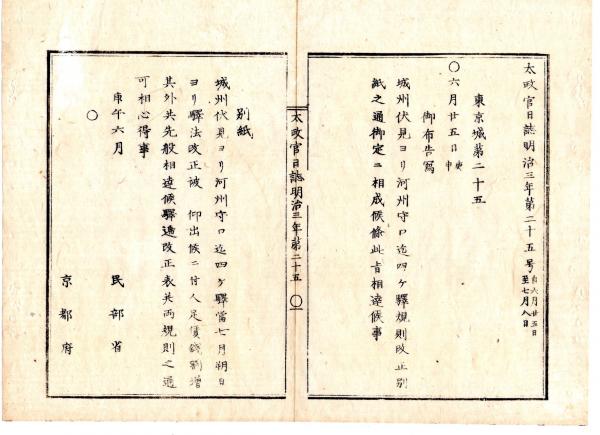 太政官日誌明治三年第二十五号 自六月廿五日 至七月八日
東京城第二十五
〇六月廿五日 庚申
御布告寫
城州伏見ヨリ河州守口迄四ヶ驛規則改正別
紙之通御定ニ相成候條此旨相達候事
太政官日誌明治三年第二十五 〇一
別紙
城州伏見ヨリ河州守口迄四ヶ驛當七月朔日
ヨリ驛法改正被 仰出候ニ付人足賃錢割増
其外共先般相達候驛逓改正表共両規則之通
可相心得事
庚午六月 民部省
〇
京都府